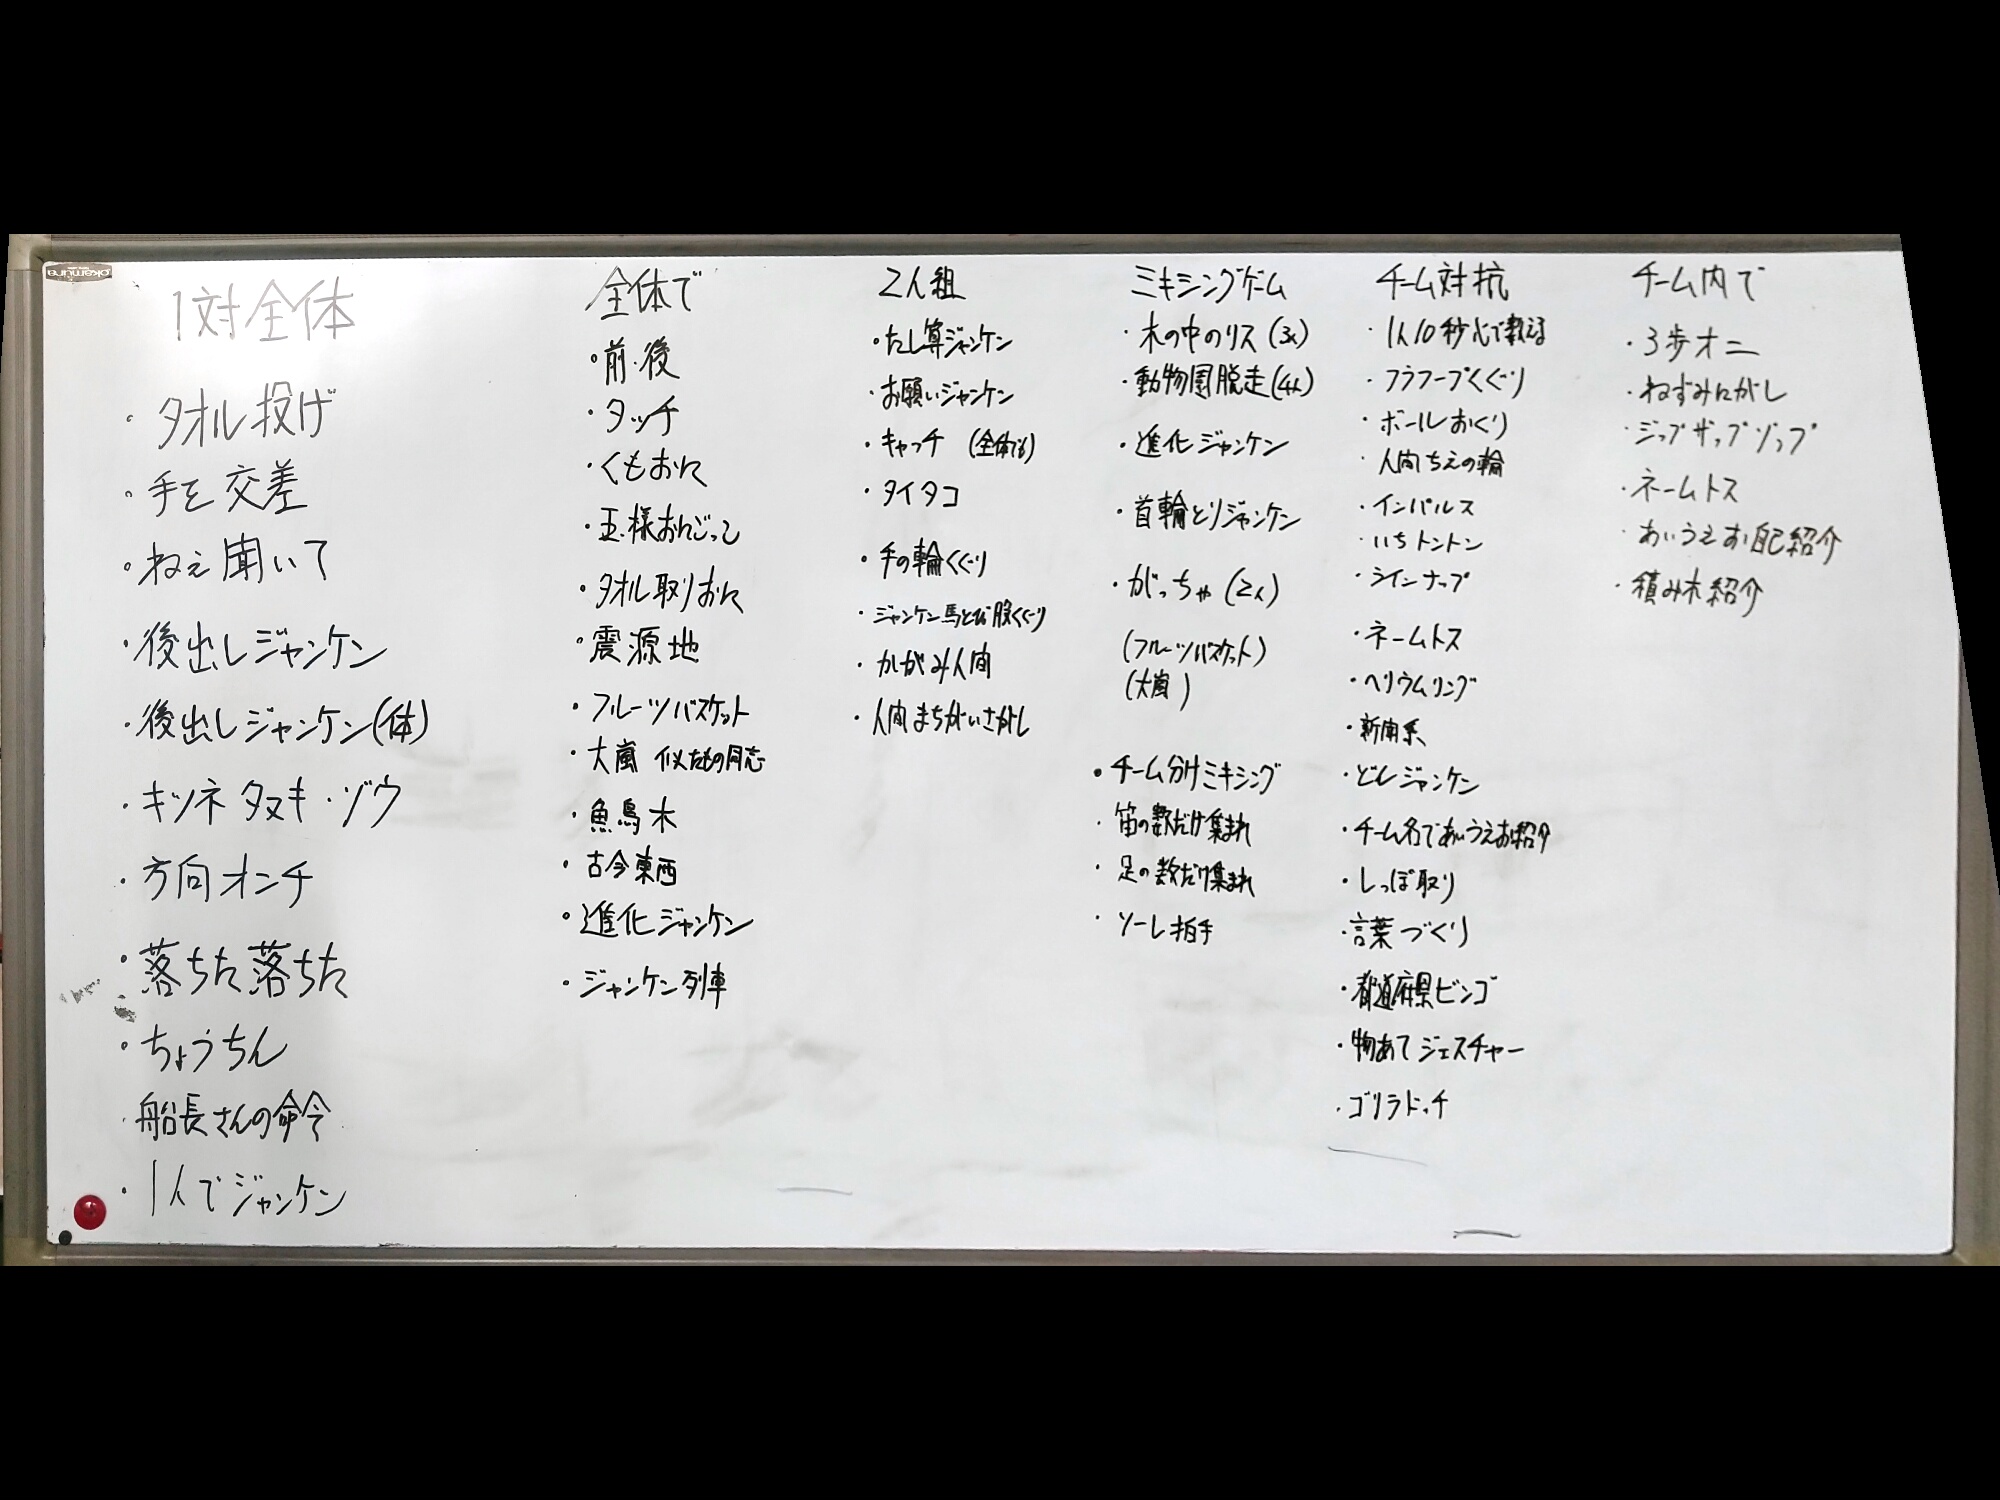 okamura
1対全体
・タオル投げ
・手を交差
・ねぇ聞いて
・後出しジャンケン
・後出しジャンケン(体)
・キツネ タヌキ・ゾウ
・方向オンチ
・落ちた落ちた
・ちょうちん
・船長さんの命令
・1人でジャンケン
全体で
・前・後
・タッチ
・くもおに
・王様おにごっこ
・タオル取りおに
・震源地
・フルーツバスケット
・大嵐 似たもの同志
・魚鳥木
・古今東西
・進化ジャンケン
・ジャンケン列車
2人組
・たし算ジャンケン
・お願いジャンケン
・キャッチ (全体でも)
・タイタコ
・手の輪くぐり
・ジャンケン馬とび股くぐり
・かがみ人間
・人間まちがいさがし
ミキシングゲーム
・木の中のリス(3人)
・動物園脱走(4人)
・進化ジャンケン
・首輪とりジャンケン
・がっちゃ(2人)
(フルーツバスケット)
(大嵐)
・チーム分けミキシング
・笛の数だけ集まれ
・足の数だけ集まれ
・ソーレ拍手
チーム対抗
・1人10秒心で数える
・フラフープくぐり
・ボールおくり
・人間ちえの輪
・インパルス
・いちトントン
・ラインナップ
・ネームトス
・ヘリウムリング
・新聞系
・どしジャンケン
・チーム名であいうえお紹介
・しっぽ取り
・言葉づくり
・都道府県ビンゴ
・物あてジェスチャー
・ゴリラドッチ
チーム内で
・3歩オニ
・ねずみにがし
・ジップザップゾップ
・ネームトス
・あいうえお自己紹介
・積み木紹介